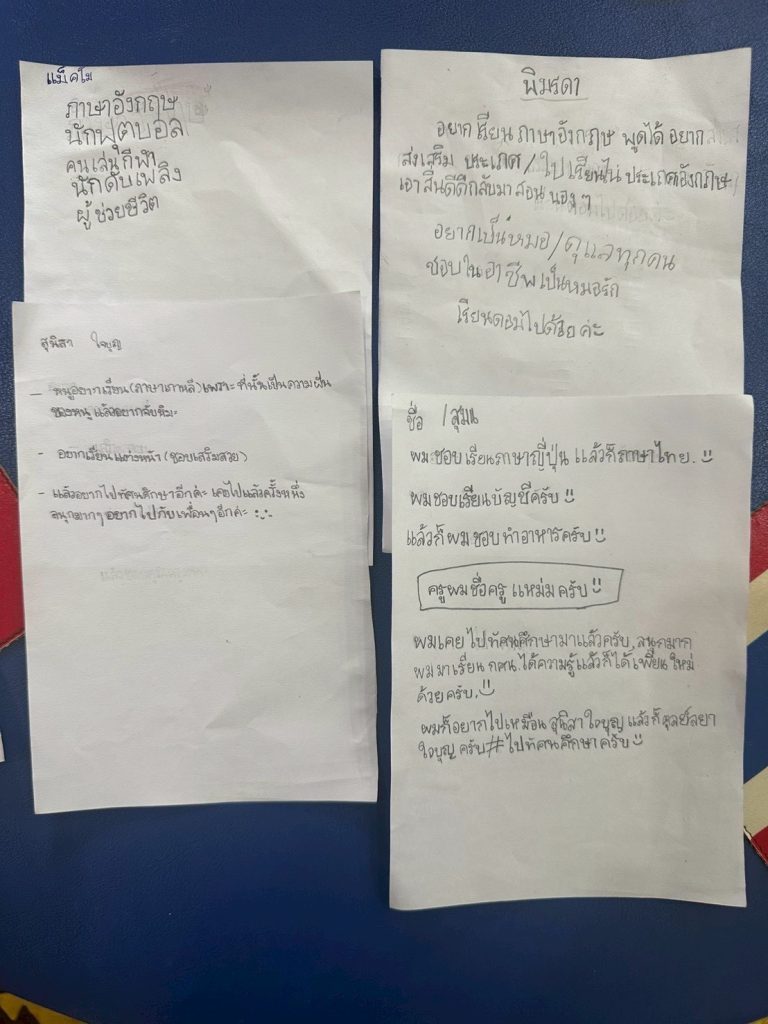 แม็คโม
ภาษาอังกฤษ
นักฟุตบอล
คนเล่นกีฬา
นักดับเพลิง
ผู้ช่วยชีวิต
พิมรดา
อยากเรียนภาษาอังกฤษ พูดได้ อยาก
ส่งเสริม ประเภศ/ไปเรียนไน่ ประเภศอังกฤษ/
เอาสิ่นดีดีกลับมาสอน นองๆ
อยากเป็นหมอ/ดูแลทุกคน
ชอบในอาชีพเป็นหมอรัก
เรียนตอบไปด้วย ค่ะ
สุนิสา ใจบุญ
- หนูอยากเรียน(ภาษาเกาหลี)เพราะ ที่นั้นเป็นความฝัน
ของหนู แล้วอยากจับหิมะ
- อยากเรียนแต่งหน้า(ชอบเสริมสวย)
- แล้วอยากไปทัศนศึกษาอีกค่ะ เคยไปแล้วครั้งหนึ่ง
สนุกมากๆ อยากไปกับเพื่อนๆอีกค่ะ
ชื่อ /สุมน
ผมชอบเรียนภาษาญี่ปุ่น แล้วก็ภาษาไทย.
ผมชอบเรียนบัญชีครับ
แล้วก็ผมชอบทำอาหารครับ
ครูผมชื่อครูแหม่มครับ
ผมเคยไปทัศนศึกษามาแล้วครับ, สนุกมาก
ผมมาเรียน กศน.ได้ความรู้แล้วก็ได้เพื่อนใหม่
ด้วยครับ,
ผมก็อยากไปเหมือน สุนิสา ใจบุญ แล้วก็
ใจบุญ ครับ#ไปทัศนศึกษาครับ